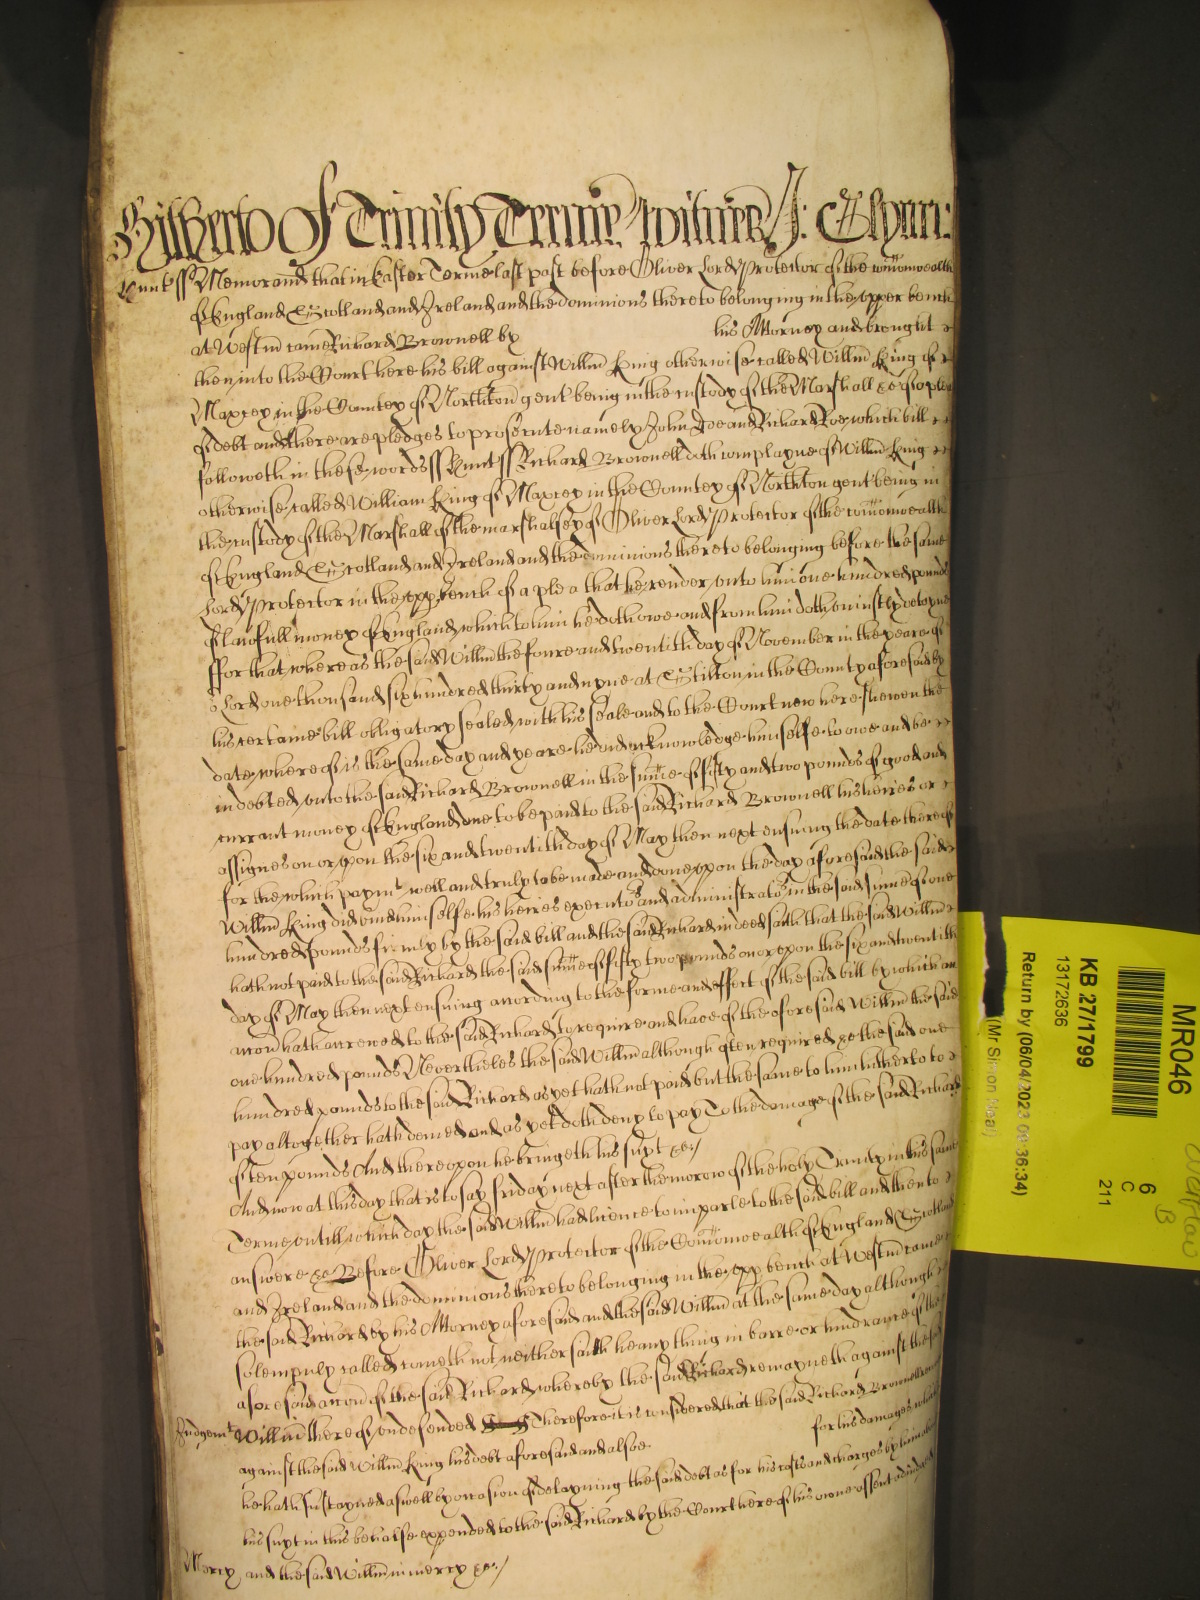 Hitherto of Trinity Terme witnes J: Glynn:
Hunt ss Memorand that in Easter Terme last past before Oliver Lord Protector of the comonwealth
of England Scotland and Ireland and the dominions thereto belonging in the upper bench
at Westm came Richard Brownell by his Attorney and brought
then into the Court here his bill against Willm King otherwise called Willm King of
Maxey in the County of Northton gent being in the custody of the Marshall &c of a plea
of debt and there are pledges to prosecute namely John Doe and Richard Roe which bill
followeth in these words ss Hunt ss Richard Brownell doth complayne of Willm King
otherwise called William King of Maxey in the County of Northton gent being in
the custody of the Marshall of the marshalsey of Oliver Lord Protector of the comonwealth
of England Scotland and Ireland and the dominions thereto belonging before the same
Lord Protector in the upp bench of a plea that he render unto him one hundred pounds
of lawfull money of England which to him he doth owe and from him doth uniustly deteyne
ffor that whereas the said Willm the foure and twentith day of November in the yeare of
o Lord one thousand six hundred thirty and nyne at Stilton in the County aforesaid by
his certaine bill obligatory sealed with his seale and to the Court now here shewen the
date whereof is the same day and yeare he did acknowledge himselfe to owe and be
indebted unto the said Richard Brownell in the sume of fifty and two pounds of good and
currant money of England to be paid to the said Richard Brownell his heires or
assignes on or upon the six and twentith day of May then next ensuing the date thereof
for the which paymt well and truly to be made and done upon the day aforesaid the said
Willm King did bind himselfe his heires executors and administrators in the said sume of one
hundred pounds firmly by the said bill and the said Richard in deed saith that the said Willm
hath not paid to the said Richard the said sume of fifty two pounds on or upon the six and twentith
day of May then next ensuing according to the forme and effect of the said bill by which an
accon hath accrewed to the said Richard to require and have of the aforesaid Willm the said
one hundred pounds Neverthelesse the said Willm although often required &c the said one
hundred pounds to the said Richard as yet hath not paid but the same to him hitherto to
pay altogether hath denied and as yet doth deny to pay To the damage of the said Richard
of ten pounds And thereupon he bringeth his suyt &c /
And now at this day that is to say friday next after the morow of the holy Trinity in this same
Terme untill which day the said Willm had licence to imparle to the said bill and then to
answere &c Before Oliver Lord Protector of the Comonwealth of England Scotland
and Ireland and the dominions thereto belonging in the upp bench at Westm came
the said Richard by his Attorney aforesaid and the said Willm at the same day although
solempnly called cometh not neither saith he any thing in barre or hindrance of the
aforesaid accon of the said Richard whereby the said Richard remayneth against the said
Judgemt Willm thereof undefended Therefore it is considered that the said Richard Brownell recover
against the said Willm King his debt aforesaid and alsoe for his damages which
he hath sustayned aswell by occasion of detayning the said debt as for his costs and charges by him about
his suyt in this behalfe expended to the said Richard by the Court here of his owne assent adiudged
Mercy and the said Willm in mercy &c /
MR046
KB 27/1799
13172636
Return by (06/04/2023 09:36:34)
(Mr Simon Neal)
6
C
211
B